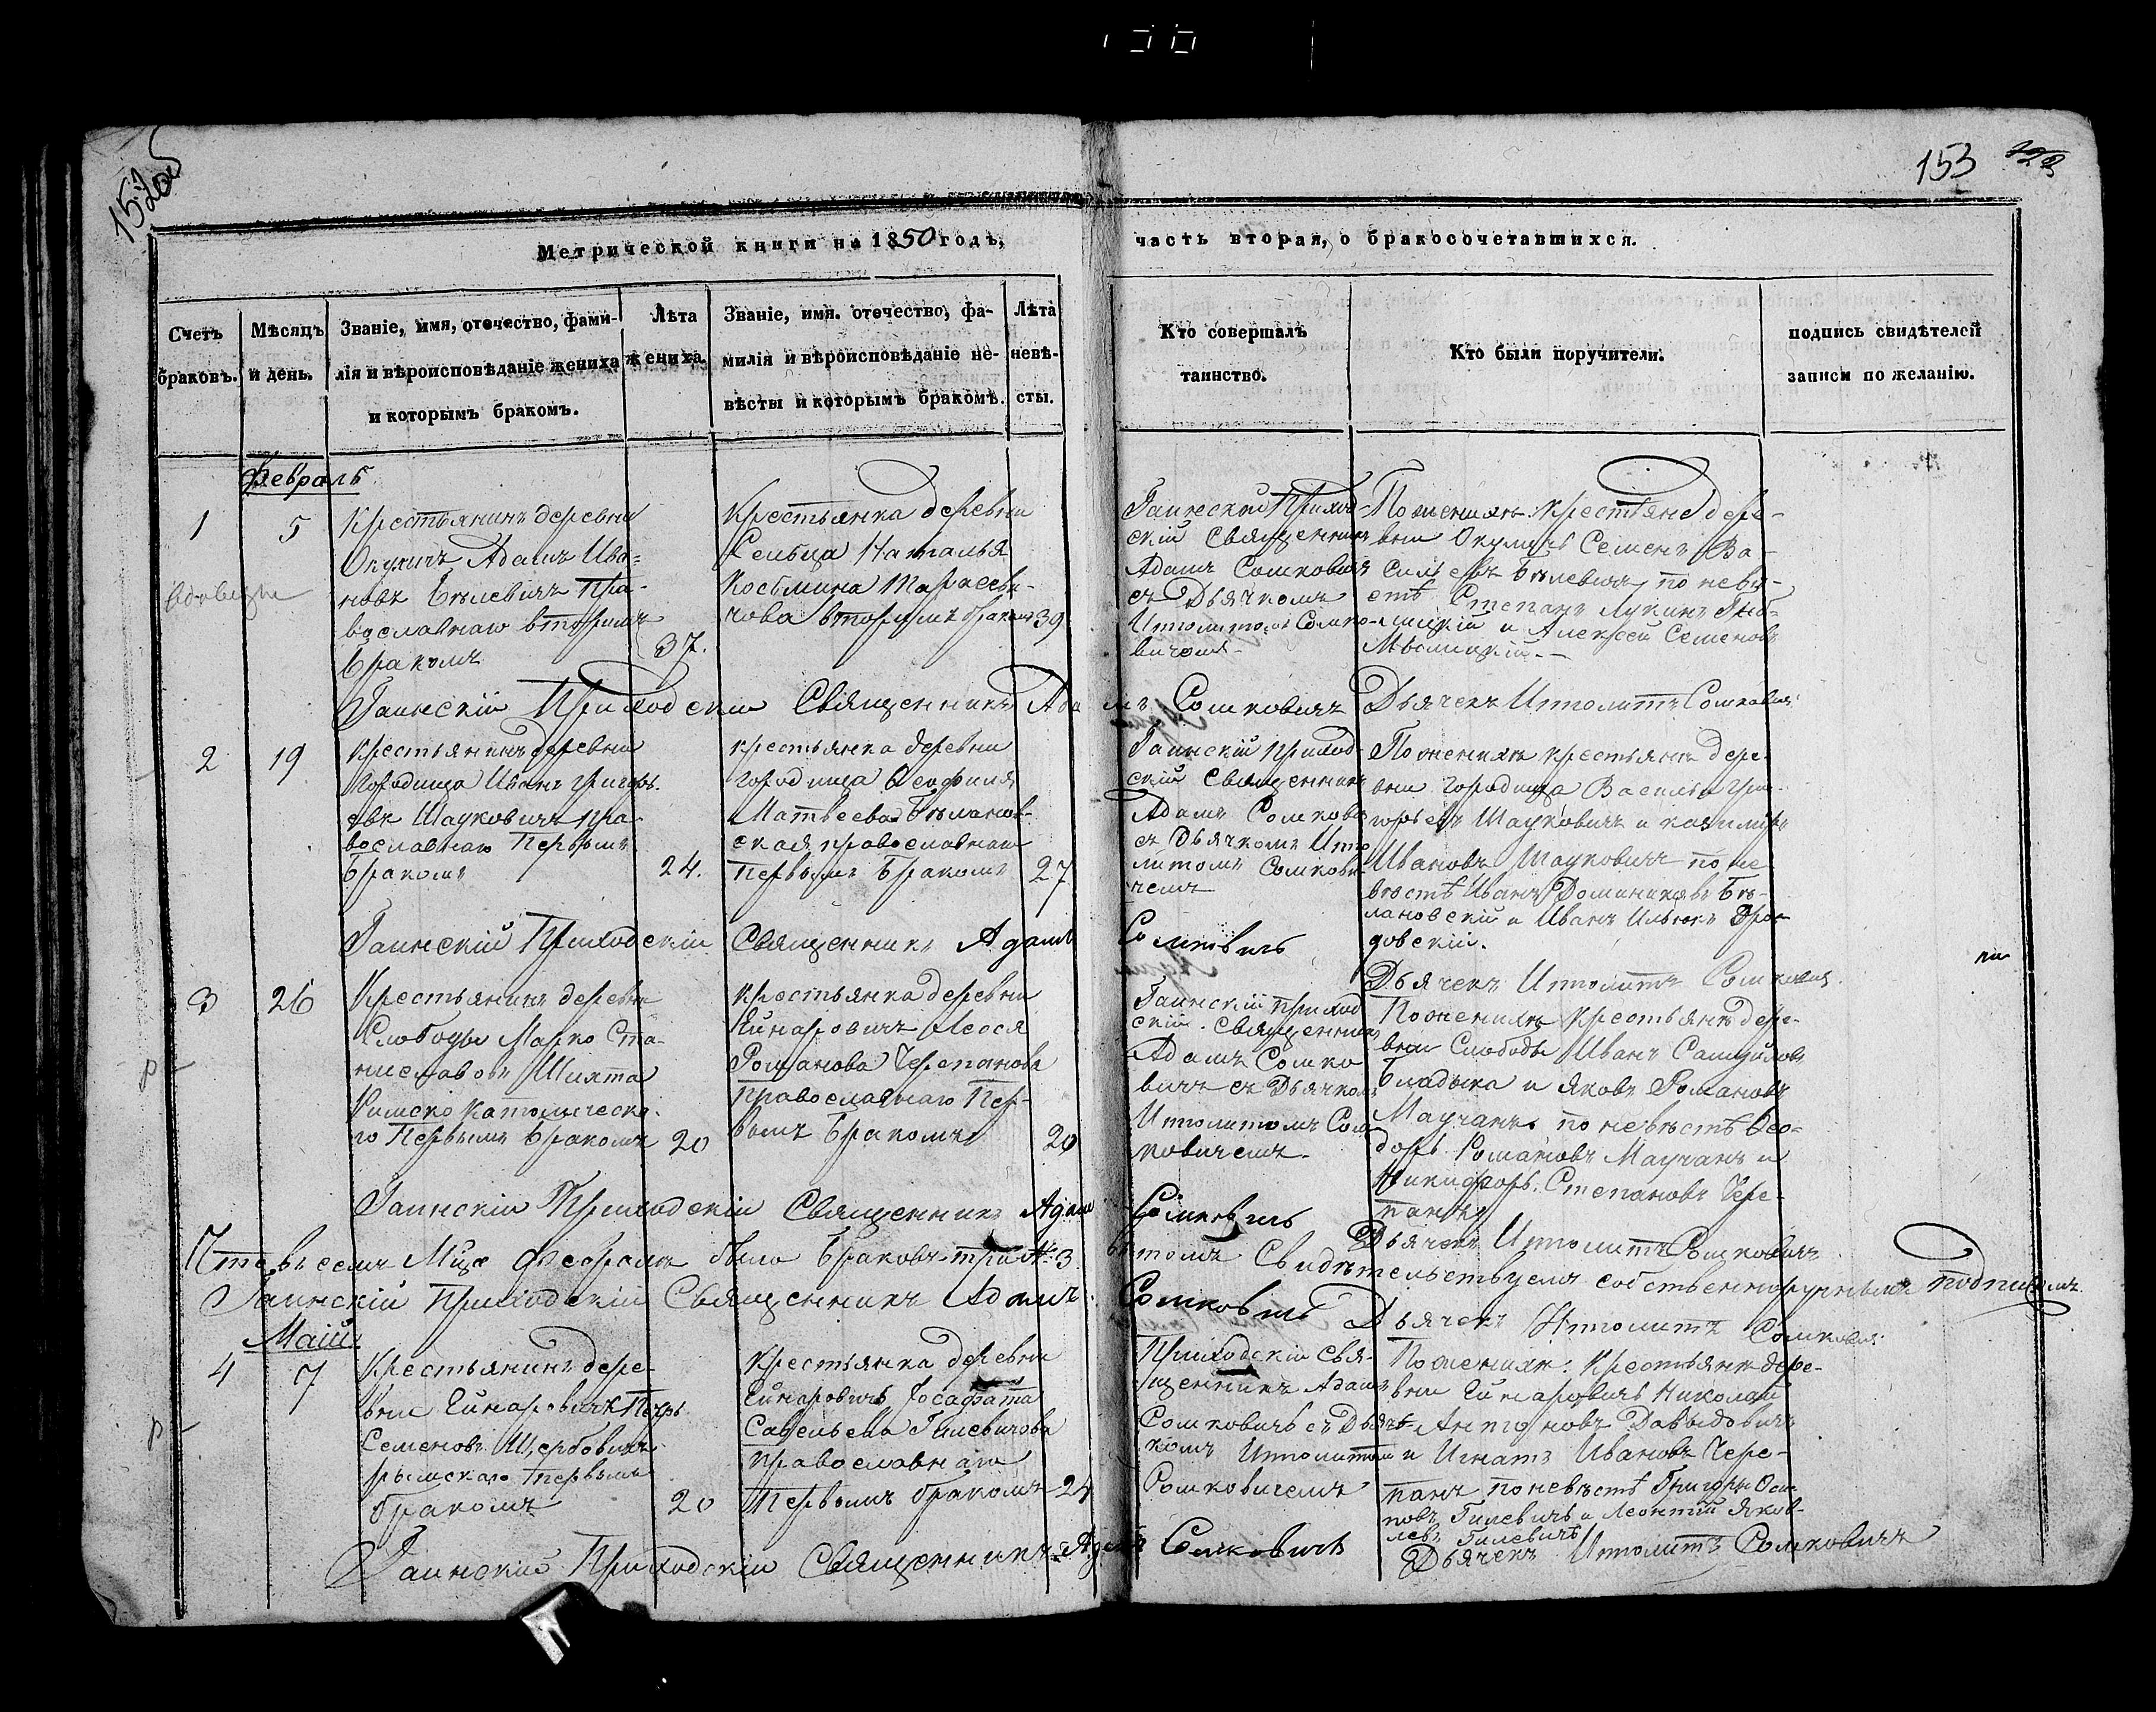 152об
153
Метрической книги на 1850 годъ,
часть вторая, о бракосочетавшихся.
Счетъ браковъ.
Мѣсяцъ и день.
Званіе, имя, отечество, фами-
лія и вѣроисповѣданіе жениха
и которымъ бракомъ.
Лѣта
жениха.
Званіе, имя. отечество, фа-
милія и вѣроисповѣданіе не-
вѣсты и которымъ бракомъ.
Лѣта
невѣ-
сты.
Кто совершалъ
таинство.
Кто были поручители.
подпись свидѣтелей
записи по желанію.
Февраль
1
5
Крестьянинъ деревни
Адамъ Ива-
новъ Бѣлевичъ Пра-
вославнаго вторымъ
бракомъ
37.
Крестьянка деревни
Сельца Наталья
Косьмина Тарасеви-
чова вторымъ бракомъ
39
Гаинский Приход-
скій Священникъ
Адамъ Сошковичъ
съ Дьячкомъ
Ипполитомъ Сошко-
вичемъ
По женихѣ: крестьяне дере-
вни Семенъ Ва-
сильевъ Бѣлевичъ, по невѣ-
стѣ Степанъ Лукинъ
и Алексей Семеновъ
Гаинскій Приходскій Священникъ Адамъ Сошковичъ
Дьячекъ Ипполитъ Сошковичъ
2
19
Крестьянинъ деревни
Городища Иванъ Григорь-
евъ Шауковичъ пра-
вославнаго Первымъ
бракомъ
24.
крестьянка деревни
Городища Феофиля
Матвеева Бѣланов-
ская православнаго
Первымъ бракомъ
27
Гаинскій приход-
скій Священникъ
Адамъ Сошкови
съ Дьячкомъ Иппо
литомъ Сошкови
чемъ
По женихѣ крестьяне дере-
вни Городища Василій Гри-
горьевъ Шауковичъ и казимиръ
Ивановъ Шауковичъ по не
вѣстѣ Иванъ Доминиковъ Бѣ-
лановскій и Иванъ
Гаинскій Приходскій Священникъ Адамъ Сошковичъ
Дьячекъ Ипполитъ Сошковичъ
3
26
Крестьянинъ деревни
Слободы Марко Ста-
ниславовъ Шихта
Римско Католическа-
го Первымъ бракомъ
20
крестьянка деревни
Ейнаровичъ
Романова Черепанова
Православнаго Пер-
вымъ бракомъ
20
Гаинскій приход
скій Священникъ
Адамъ Сошко
вичъ съ Дьячкомъ
Ипполитомъ Сош
ковичемъ.
По женихѣ крестьяне дере-
вни Слободы Иванъ Самуйловъ
Бладыка и Яковъ Романовъ
Маучанъ. по невѣстѣ Фео-
доръ Романовъ Маучанъ и
Никифоръ Степановъ Чере-
панъ
Гаинскій Приходскій Священникъ Адамъ Сошковичъ
Дьячекъ Ипполитъ Сошковичъ
Что въ семъ Мцѣ Февралѣ было браковъ три № 3 въ томъ Свидѣтельствуемъ собственноручнымъ подписомъ.
Гаинскій Приходскій Священникъ Адамъ Сошковичъ
Дьячекъ Ипполитъ Сошковичъ
Маій
4
7
Крестьянинъ дере-
вни Ейнаровичъ Петръ
Семеновъ Щербовичъ
рымскаго первымъ
бракомъ
20
крестьянка деревни
Ейнаровичъ Іосафата
Савельева Гилевичова
православнаго
Первымъ бракомъ
24
Приходскій Свя-
щенникъ Адамъ
Сошковичъ съ Дьяч-
комъ Ипполитом
Сошковичемъ
По женихѣ: Крестьяне дере-
вни Ейнаровичъ Николай
Антоновъ Давыдовичъ
и Игнатъ Ивановъ Чере-
панъ по невѣстѣ Григорій Оси-
повъ Гилевичъ и Леонтій Яков-
левъ Гилевичъ
Гаинскій Приходскій Священникъ Адамъ Сошковичъ
Дьячекъ Ипполитъ Сошковичъ